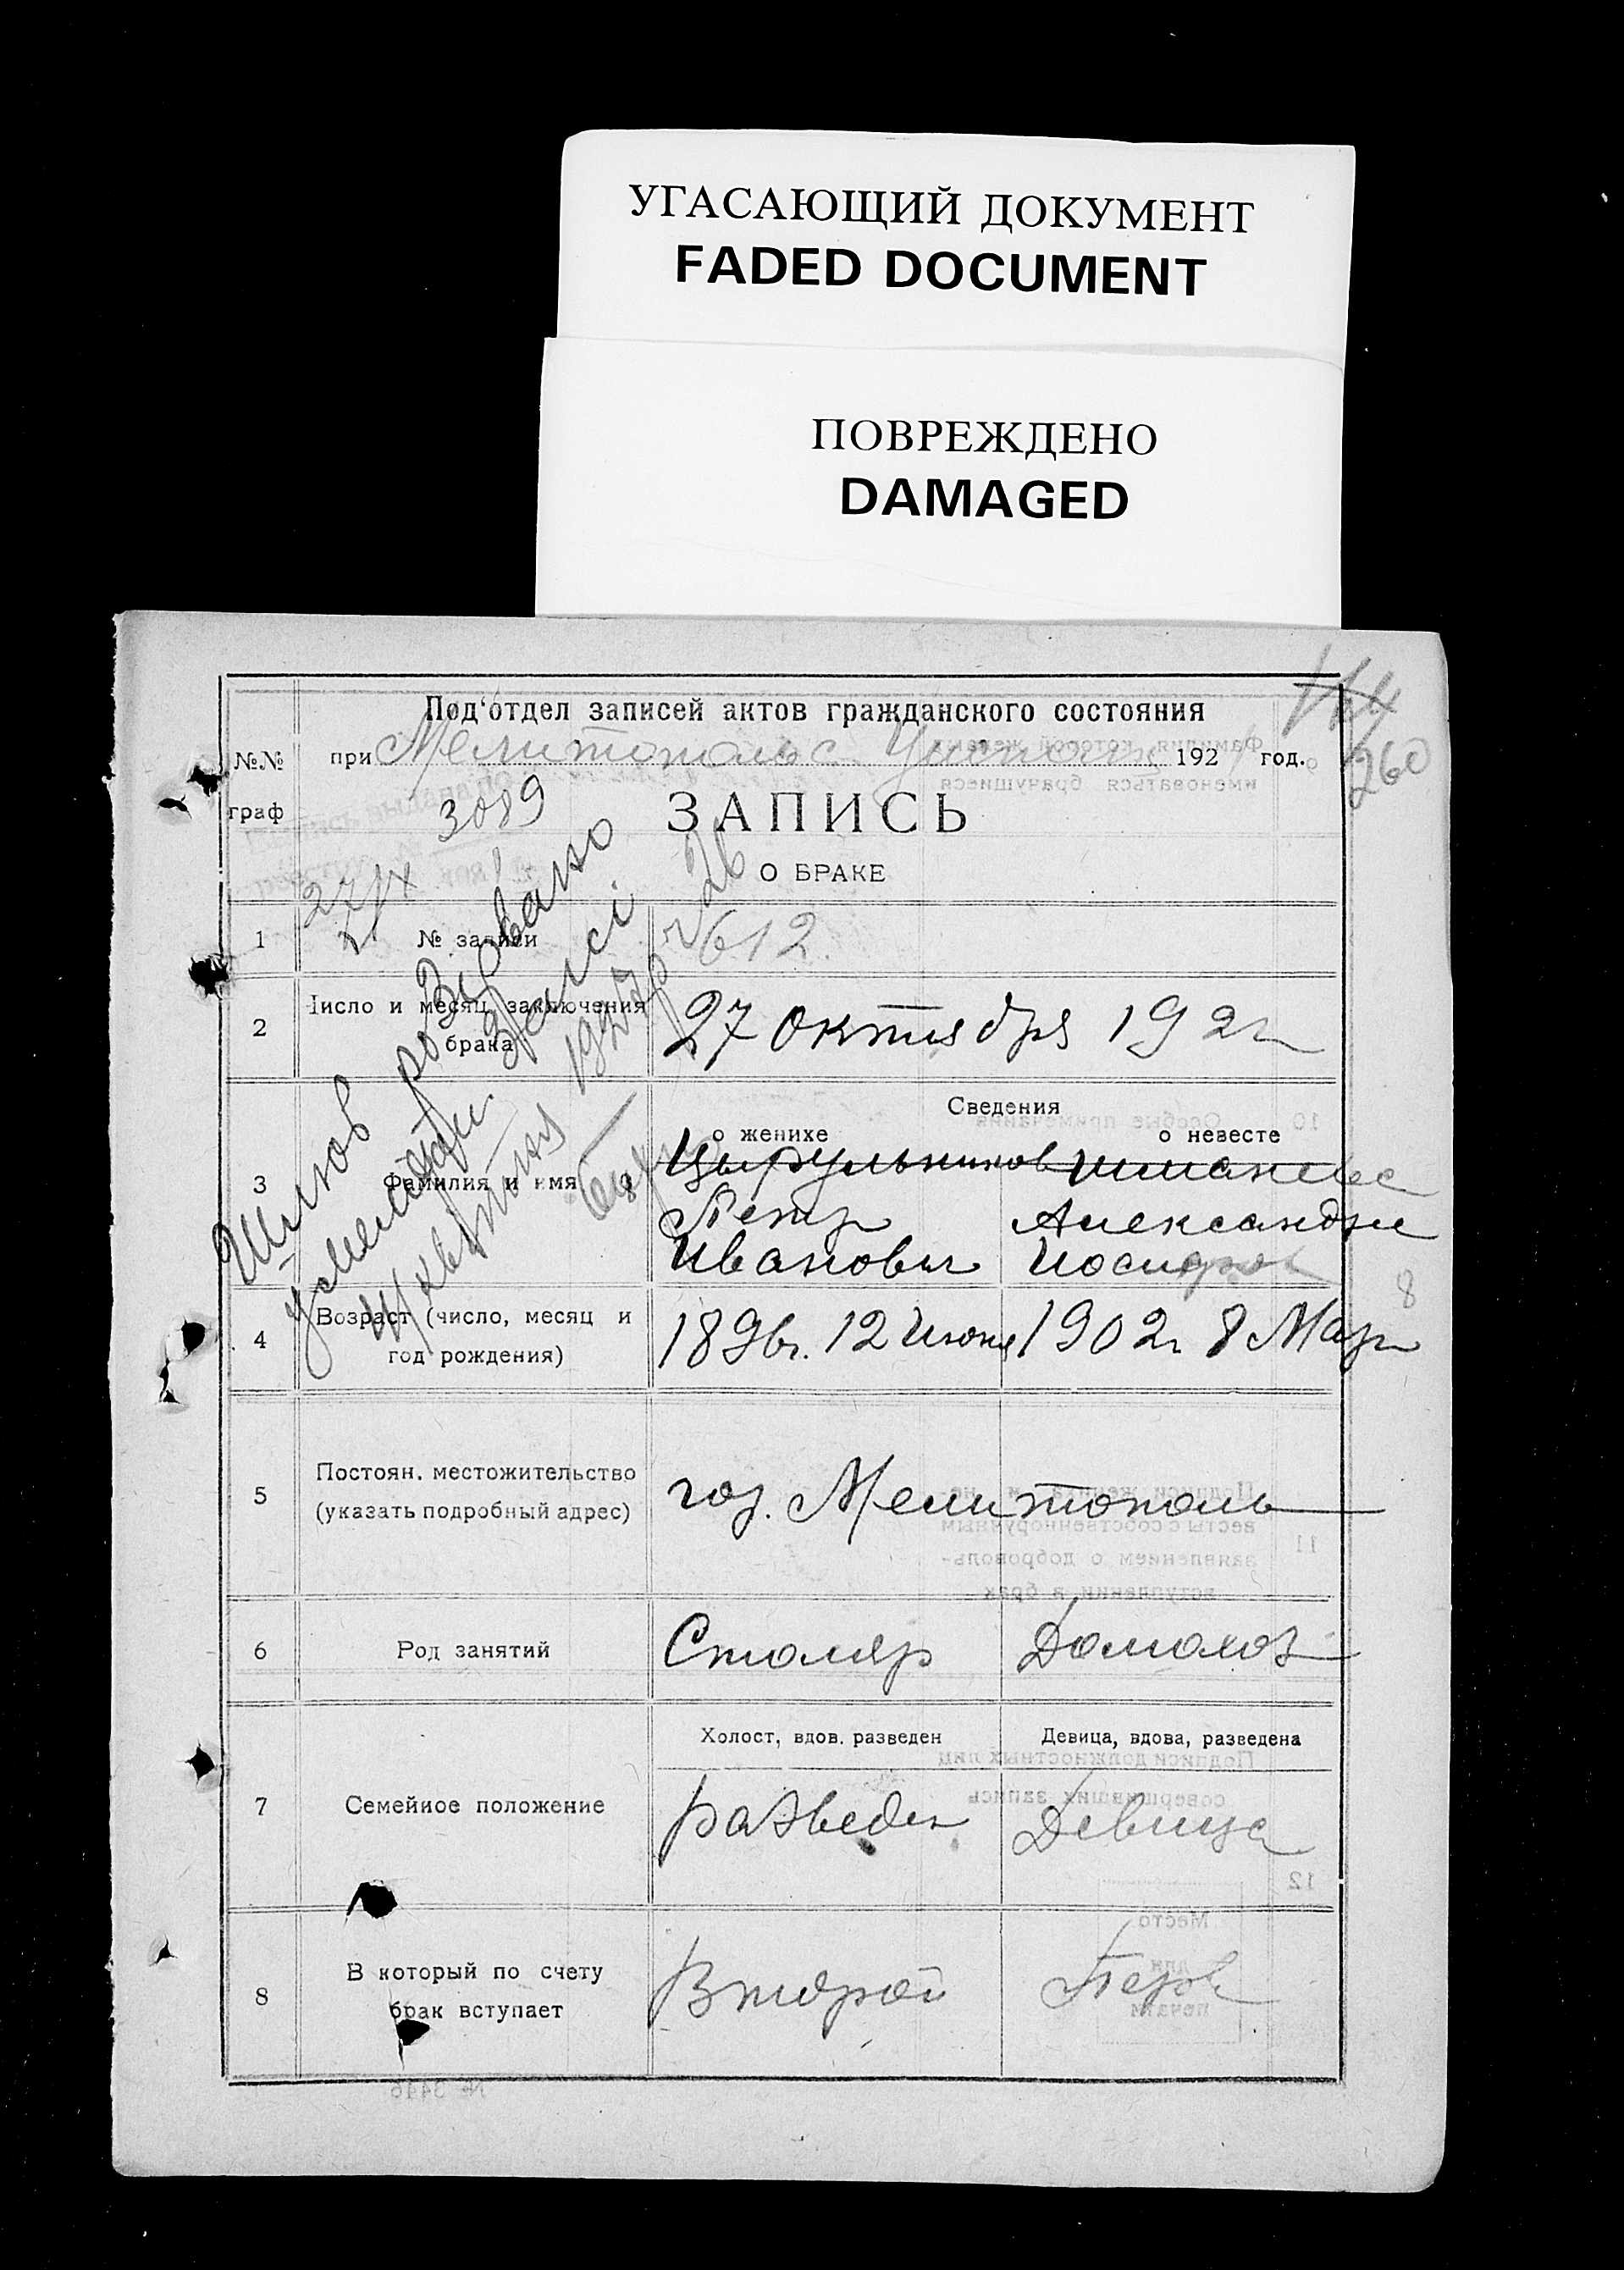 УГАСАЮЩИЙ ДОКУМЕНТ
FADED DOCUMENT
ПОВРЕЖДЕНО
DAMAGED
Под'отдел записей актов гражданского состояния
164
260
№№
граф
при Мелитопольс 192 год.
3089
ЗАПИСЬ
О БРАКЕ
1
№ записи
612.
2
Число и месяц заключения
брака
27 октября 192 г
Шлюб розірвано
3
Фамилия и имя
Сведения
о женихе
о невесте
Цырульников
Петр
Александра
Иванович
Иосифов
8
4
Возраст (число, месяц и
год рождения)
1896г. 12 Июня
1902г 8 Мар
5
Постоян. местожительство
(указать подробный адрес)
гор. Мелитополь
6
Род занятий
Столяр
Домохоз
7
Семейное положение
Холост, вдов. разведен
Девица, вдова, разведена
Разведен
Девица
8
В который по счету
брак вступает
Второй
Перв